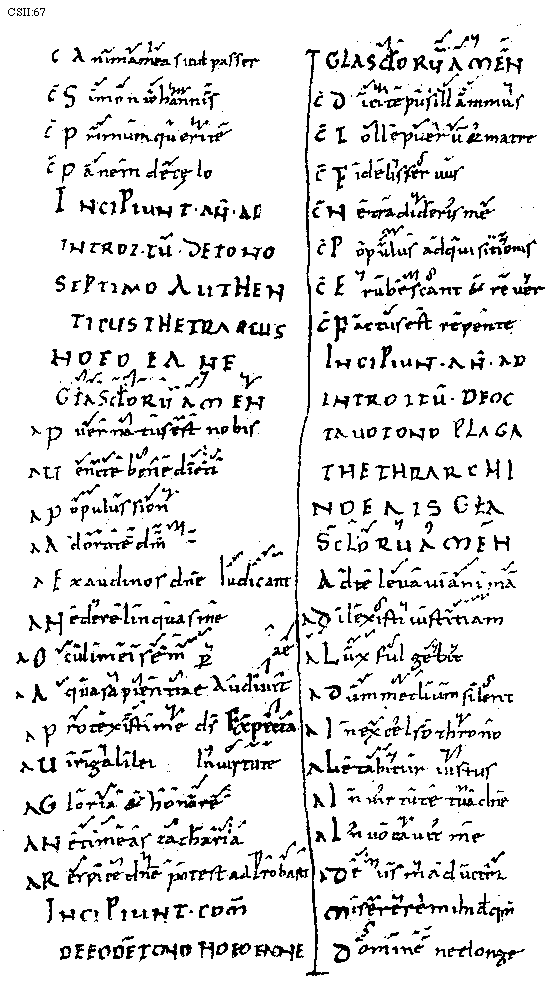 CSII:67
C Anima mea sicut passer
C Simon iohannis
C Primum querite
C Panem de celo
INCIPIUNT · AN · AD
INTROITU · DE TONO
SEPTIMO AUTHEN
TICUS THETRARCUS
NOEOEANE
GLA SCLORU AMEN
A Puer natus est nobis
A Uenite benedicti
A Populus sion
A Adorate dm
A Exaudi nos dne Iudicant
A Ne derelinquas me
A Oculi mei semp
A Aqua sapientiae Audiuit
A Protexisti me ds Expecta
A Uiri galilei In uirtute
A Gloria & honore
A Ne timeas zacharia
A Respice dne Probasti
INCIPIUNT · COM
DE EODE TONO NOEOEANE
GLA SCLORU AMEN
C Dicite pusillanimus
C Tolle puerum & matre
C Fidelis seruus
C Ne tradideris me
C Populus adquisitionis
C Erubescant & reuer
C Factus est repente
INCIPIUNT · AN · AD
INTROITU · DE OC
TAUO TONO PLAGA
THETHRARCHI
NOEAIS GLA
SCLORU AMEN
Ad te leuaui animā
A Dilexisti iustitiam
A Lux fulgebit
A Dum medium silent
A In excelso throno
A Letabitur iustus
A In uirtute tua dne
A Inuocauit me
A De
miserere mihi dne qm
Domine ne longe